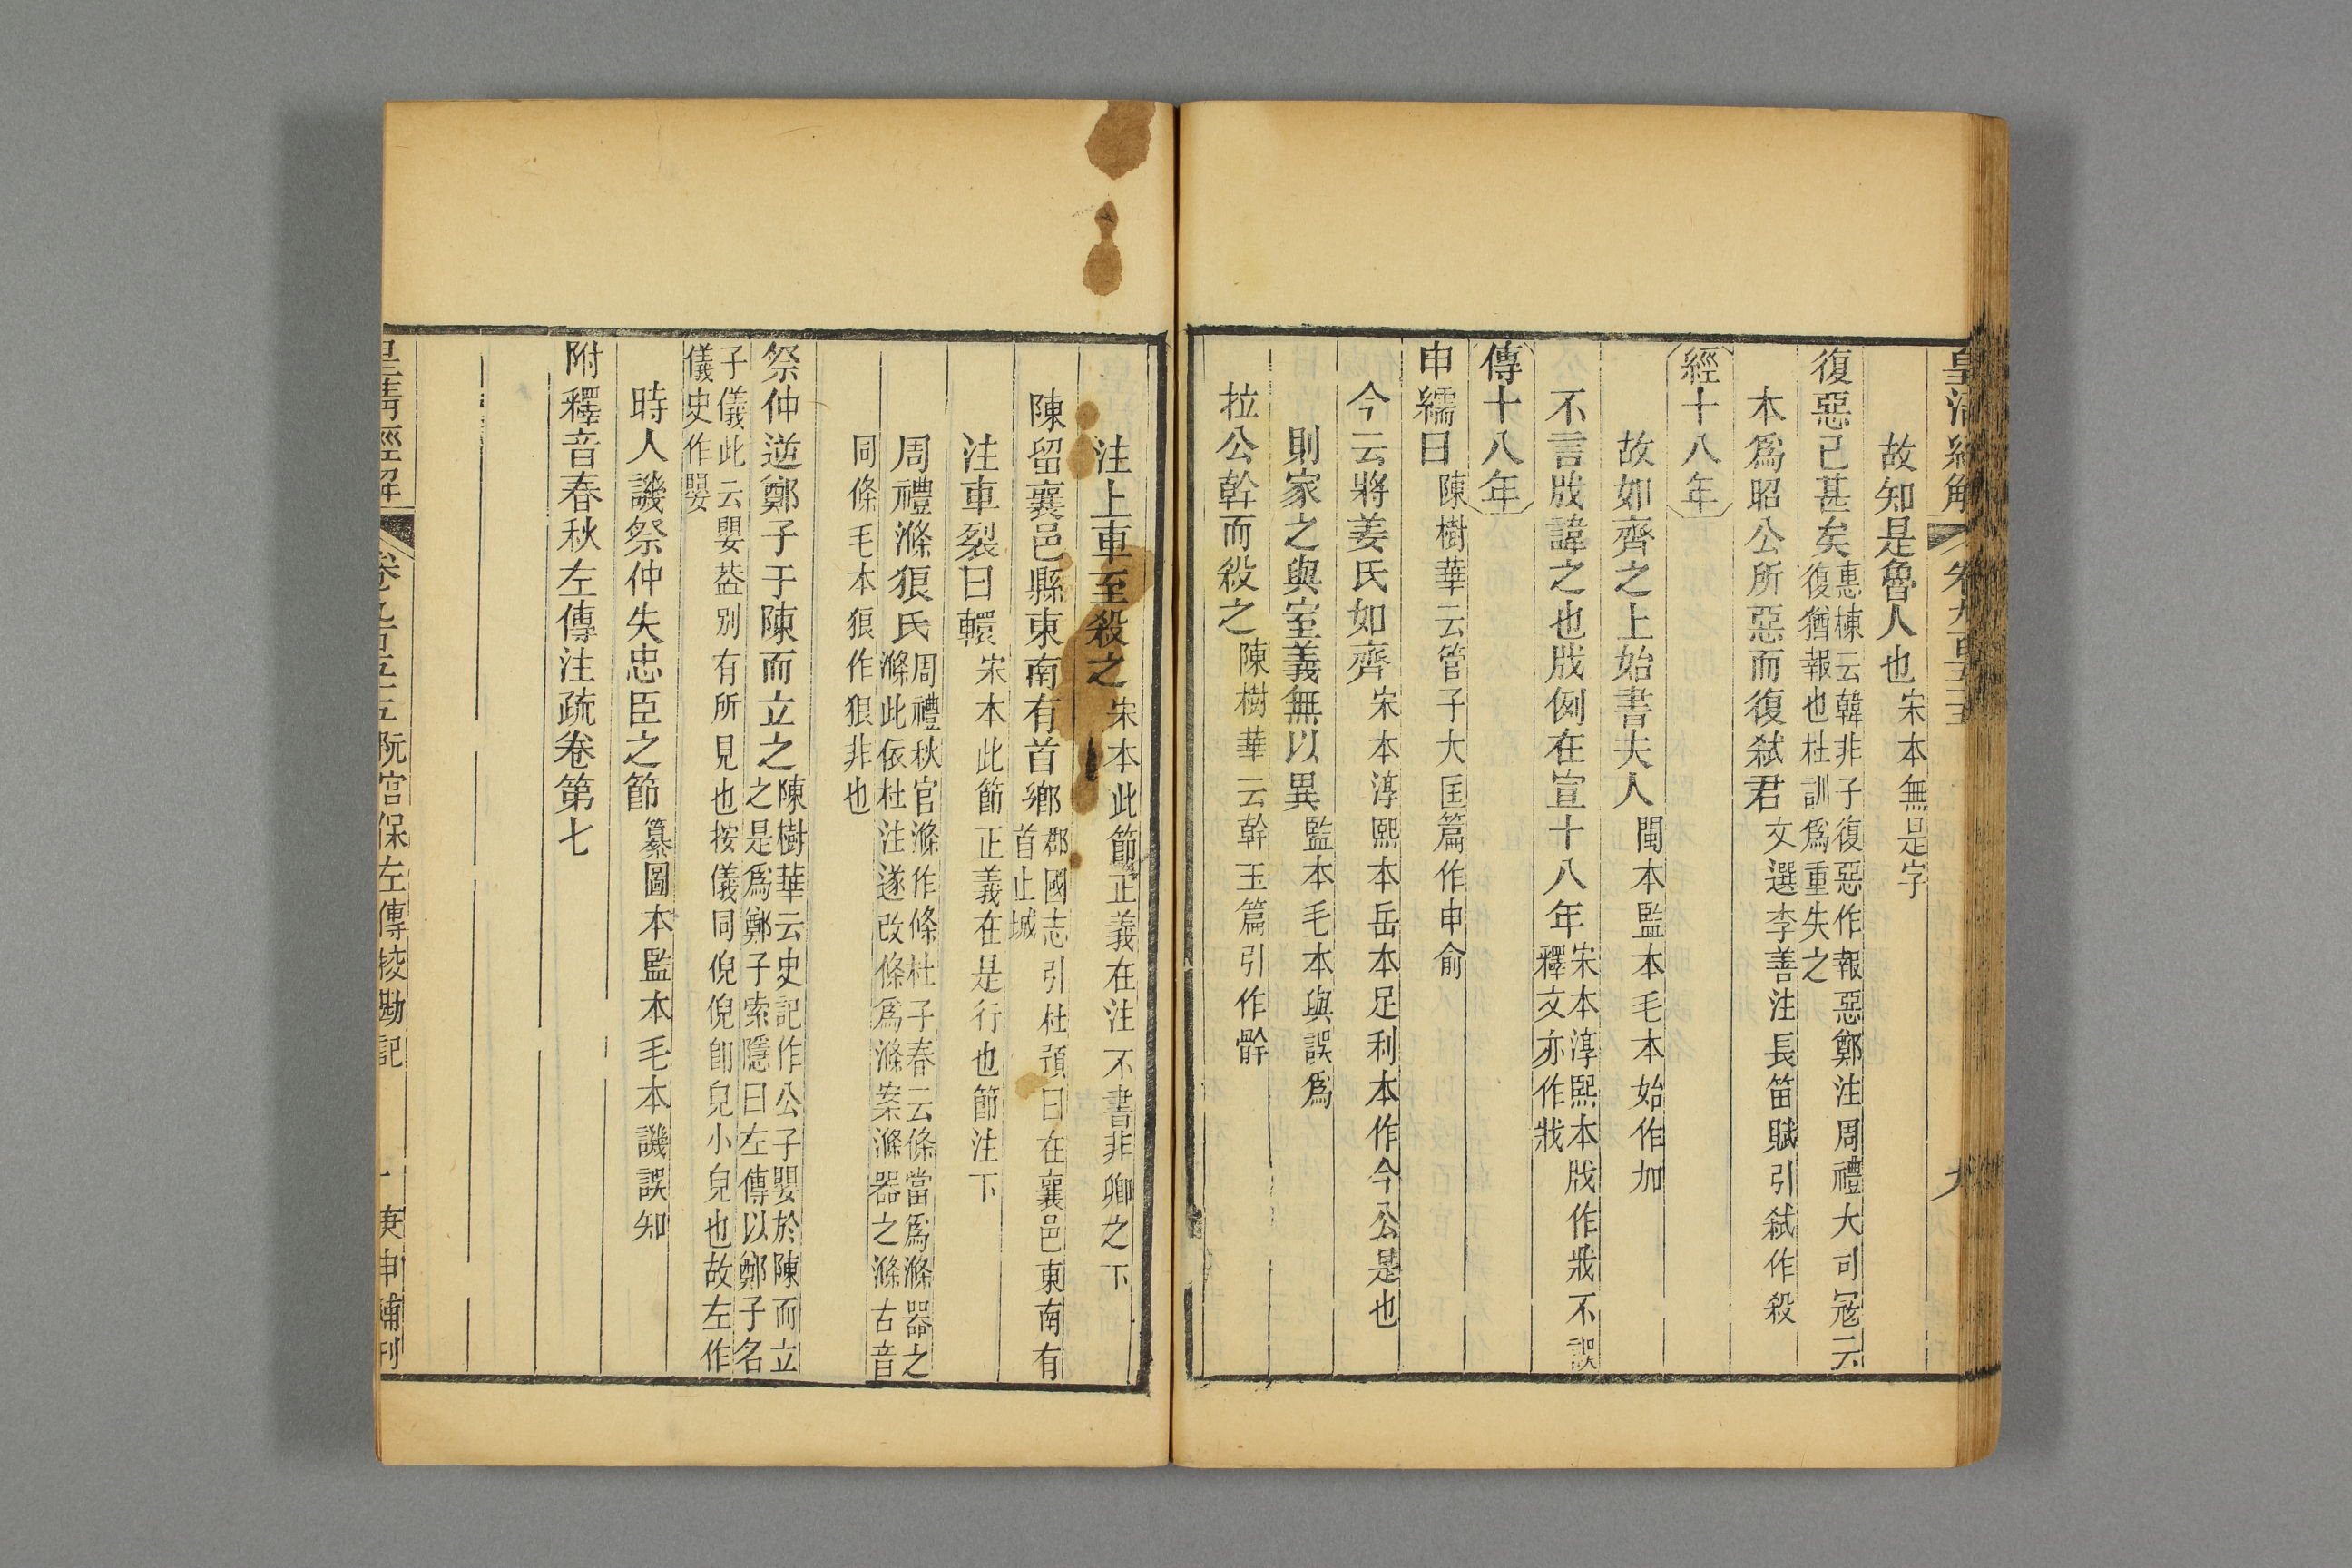 皇清經解
卷九百五十五
故知是魯人也宋本無是字
復惡已甚矣惠棟云韓非子復惡作報惡鄭注周禮大司寇云復猶報也杜訓爲重失之
本爲昭公所惡而復弑君文選李善注長笛賦引弑作殺
經十八年
故如齊之上始書夫人閩本監本毛本始作加
不言戕諱之也戕例在宣十八年宋本淳熙本戕作戕不誤釋文亦作戕
傳十八年
申繻曰陳樹華云管子大匡篇作申俞
今云將姜氏如齊宋本淳熙本岳本足利本作今公是也
則家之與室義無以異監本毛本與誤爲
拉公幹而殺之陳樹華云幹玉篇引作骭
注上車至殺之宋本此節正義在注不書非卿之下
陳留襄邑縣東南有首鄉郡國志引杜預曰在襄邑東南有首止城
注車裂曰轘宋本此節正義在是行也節注下
周禮滌狼氏周禮秋官滌作條杜子春云條當爲滌器之滌此依杜注遂改條爲滌案滌器之滌古音同條毛本狼作狠非也
祭仲逆鄭子于陳而立之陳樹華云史記作公子嬰於陳而立之是爲鄭子索隱曰左傳以鄭子名子儀此云嬰葢别有所見也按儀同倪倪卽兒小兒也故左作儀史作嬰
時人譏祭仲失忠臣之節纂圖本監本毛本譏誤知
附釋音春秋左傳注疏卷第七
皇清經解
卷九百五十五
阮宮保左傳挍勘記
庚申補刊